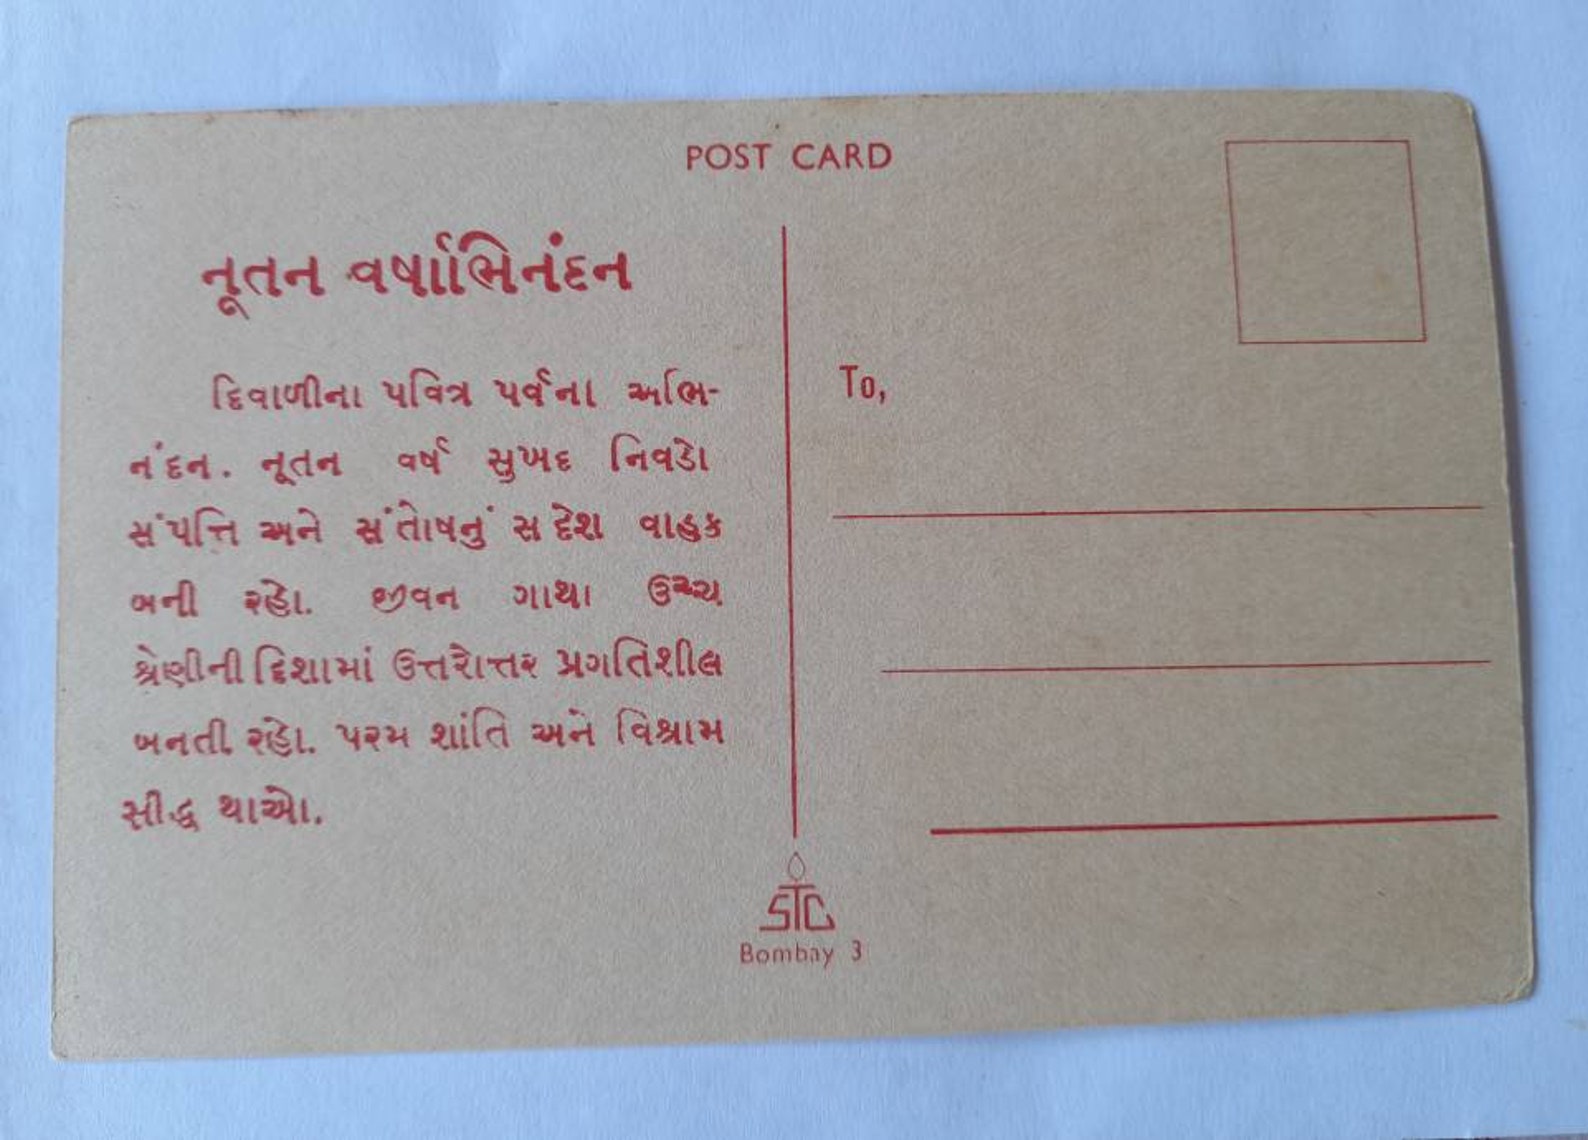 POST CARD
નૂતન વર્ષાભિનંદન
દિવાળીના પવિત્ર પર્વના અભિ-
નંદન. નૂતન વર્ષ સુખદ નિવડો
સંપત્તિ અને સંતોષનું સદેશ વાહક
બની રહો. જીવન ગાથા ઉચ્ચ
શ્રેણીની દિશામાં ઉત્તરોત્તર પ્રગતિશીલ
બનતી રહો. પરમ શાંતિ અને વિશ્રામ
સીદ્ધ થાઓ.
To,
STC
Bombay 3